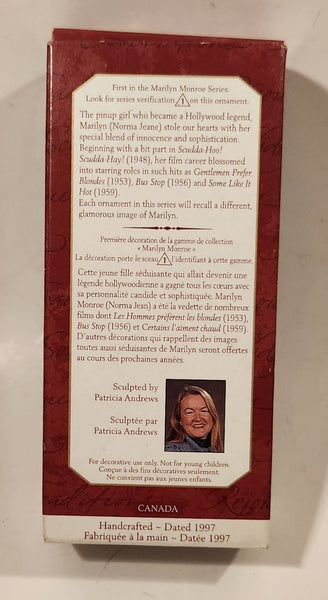 First in the Marilyn Monroe Series.
Look for series verification 1 on this ornament.
The pinup girl who became a Hollywood legend,
Marilyn (Norma Jeane) stole our hearts with her
special blend of innocence and sophistication.
Beginning with a bit part in Scudda-Hoo!
Scudda-Hay! (1948), her film career blossomed
into starring roles in such hits as Gentlemen Prefer
Blondes (1953), Bus Stop (1956) and Some Like It
Hot (1959).
Each ornament in this series will recall a different,
glamorous image of Marilyn.
Première décoration de la gamme de collection
« Marilyn Monroe »
La décoration porte le sceau 1 l'identifiant à cette gamme.
Cette jeune fille séduisante qui allait devenir une
légende hollywoodienne a gagné tous les cœurs avec
sa personnalité candide et sophistiquée. Marilyn
Monroe (Norma Jean) a été la vedette de nombreux
films dont Les Hommes préfèrent les blondes (1953),
Bus Stop (1956) et Certains l'aiment chaud (1959).
D'autres décorations qui rappellent des images
toutes aussi séduisantes de Marilyn seront offertes
au cours des prochaines années.
Sculpted by
Patricia Andrews
Sculptée par
Patricia Andrews
For decorative use only. Not for young children.
Conçue à des fins décoratives seulement.
Ne convient pas aux jeunes enfants.
CANADA
Handcrafted ~ Dated 1997
Fabriquée à la main ~ Datée 1997